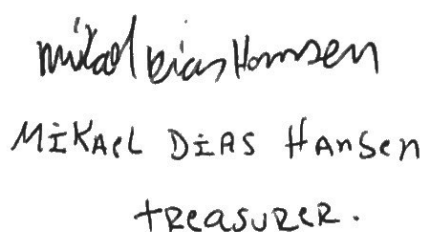 Mikael Dias Hansen
MiKAeL DiAS HAnSen
tReasuReR.